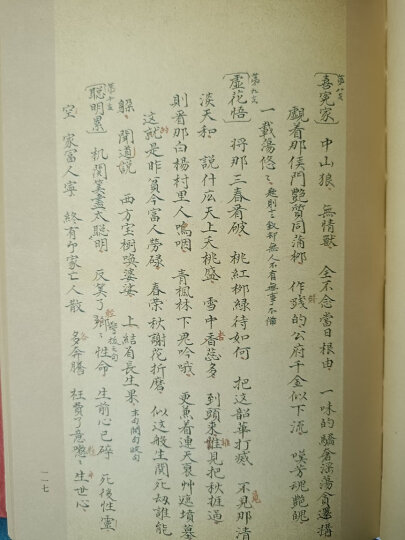 第八支
〔喜冤家〕 中山狼、無情獸 全不念當日根由 一味的驕奢淫蕩貪還構
覷着那侯門艷質同蒲柳 作踐的公府千金似下流 嘆芳魂艷魄
一載蕩悠〻 無人不有無事不備
第九支
〔虛花悟〕 將那三春看破、桃紅柳綠待如何 把這韶華打滅 不見那清
淡天和 說什広天上夭桃盛、雪中香蕊多 到頭來誰見把秋捱過
則看那白楊村里人嗚咽 青楓林下鬼吟哦 更兼着連天衰艸遮墳墓
這就是昨貧今富人勞碌 春榮秋謝花折磨 似這般生関死劫誰能
躲、聞道説 西方宝樹喚婆娑 上結着長生果 末句開句收句
第十支
〔聰明累〕 机関筭盡太聰明 反筭了卿〻性命 警拔之句 生前心已碎 死後性靈
空 家富人寧 終有个家亡人散 多奔騰 枉費了意懸〻半世心
一一七